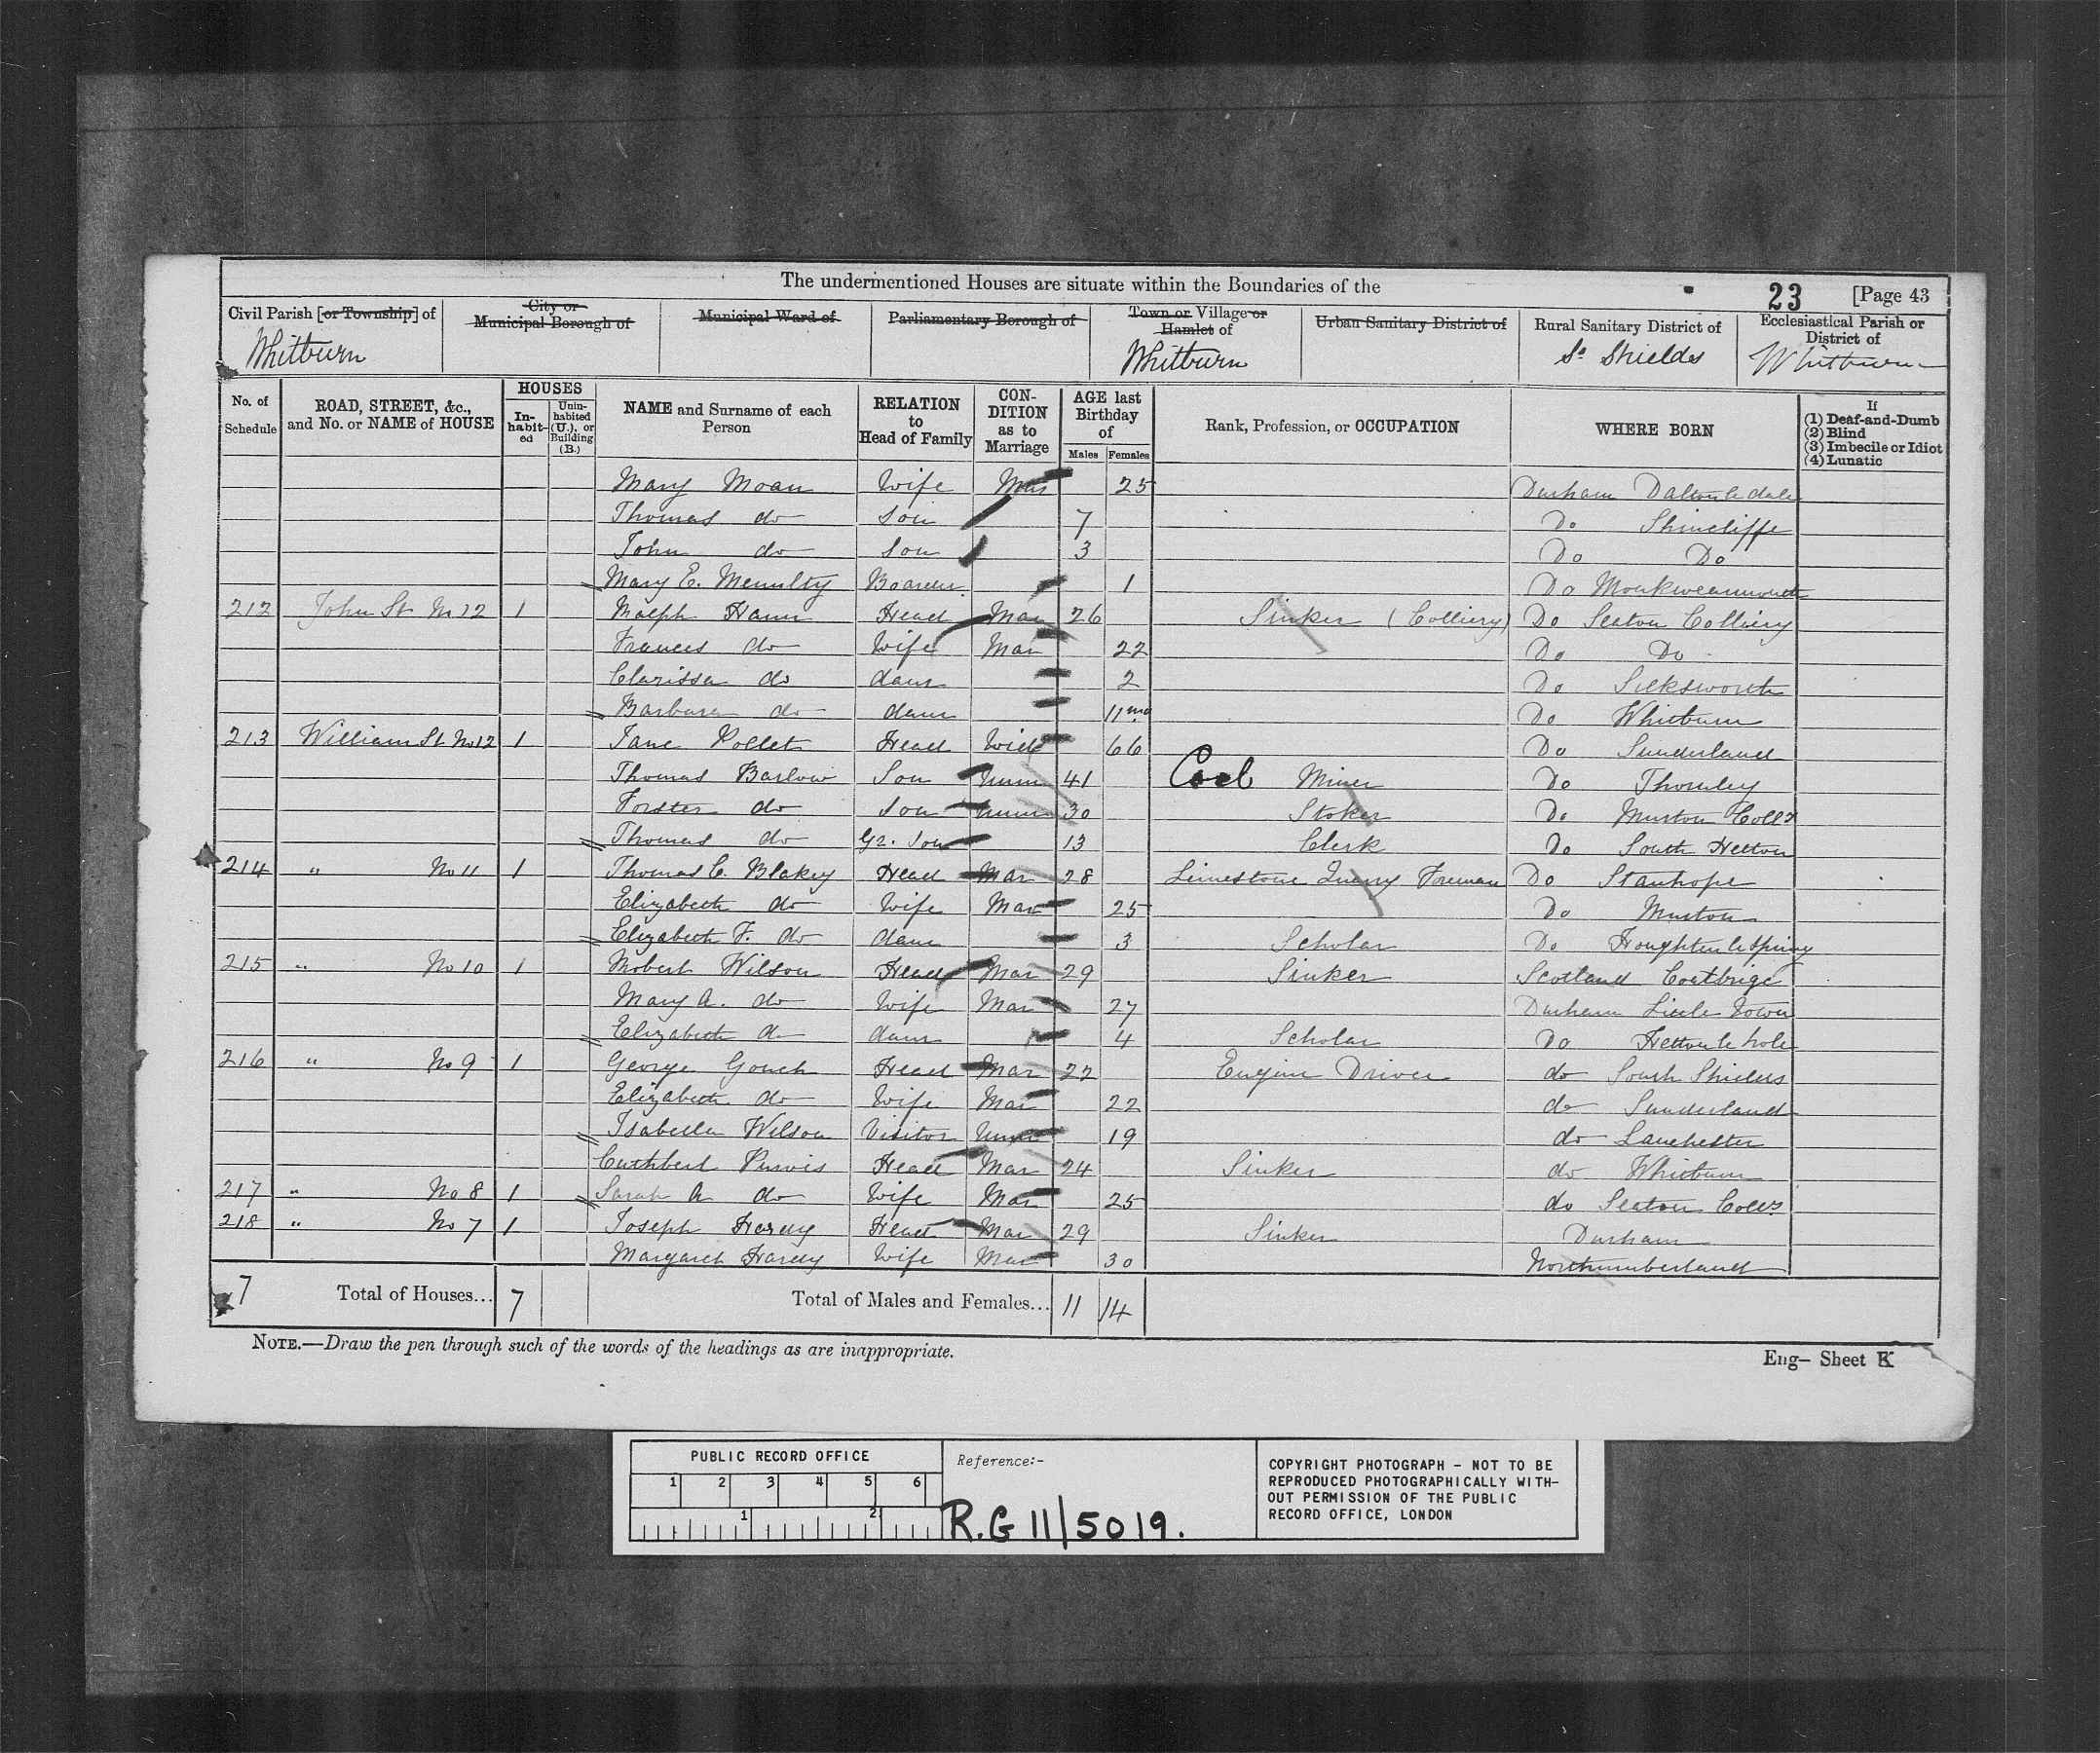 The undermentioned Houses are situate within the Boundaries of the
23 [Page 43
Civil Parish [or Township] of
City or Municipal Borough of
Municipal Ward of
Parliamentary Borough of
Town or Village or Hamlet of
Urban Sanitary District of
Rural Sanitary District of
Ecclesiastical Parish or District of
Whitburn Whitburn So Shields Whitburn
No. of Schedule
ROAD, STREET, &c., and No. or NAME of HOUSE
HOUSES
In-habit-ed
Unin-habited (U.), or Building (B.)
NAME and Surname of each Person
RELATION to Head of Family
CON-DITION as to Marriage
AGE last Birthday of
Males Females
Rank, Profession, or OCCUPATION
WHERE BORN
If
(1) Deaf-and-Dumb
(2) Blind
(3) Imbecile or Idiot
(4) Lunatic
Mary Moan Wife Mar 25 Durham Dalton le dale
Thomas do Son 7 Do Shincliffe
John do Son 3 Do Do
Mary E. Boarder 1 Do Monkwearmouth
212 John St No 12 1 Ralph Hann Head Mar 26 Sinker (Colliery) Do Seaton Colliery
Frances do Wife Mar 22 Do Do
Clarissa do daur 2 Do Silksworth
Barbara do daur 11 mo Do Whitburn
213 William St No 12 1 Jane Pollet Head Wid 66 Do Sunderland
Thomas Barlow Son Unm 41 Coal Miner Do Thornley
Forster do Son Unm 30 Stoker Do Murton Colly
Thomas do Gr. Son 13 Clerk Do South Hetton
214 " No 11 1 Thomas C. Blakey Head Mar 28 Limestone Quarry Foreman Do Stanhope
Elizabeth do Wife Mar 25 Do Murton
Elizabeth F. do daur 3 Scholar Do Houghton le Spring
215 " No 10 1 Robert Wilson Head Mar 29 Sinker Scotland Coatbrige
Mary A. do Wife Mar 27 Durham Little Town
Elizabeth do daur 4 Scholar Do Hetton le hole
216 " No 9 1 George Gouch Head Mar 22 Engine Driver do South Shields
Elizabeth do Wife Mar 22 do Sunderland
Isabella Wilson Visitor Unm 19 do Lanchester
Cuthbert Purvis Head Mar 24 Sinker do Whitburn
217 " No 8 1 Sarah A do Wife Mar 25 do Seaton Colly
218 " No 7 1 Joseph Hardy Head Mar 29 Sinker Durham
Margaret Hardy Wife Mar 30 Northumberland
7 Total of Houses... 7 Total of Males and Females... 11 14
NOTE.—Draw the pen through such of the words of the headings as are inappropriate.
Eng- Sheet K
PUBLIC RECORD OFFICE
1 2 3 4 5 6
1 2
Reference:-
R.G 11/5019.
COPYRIGHT PHOTOGRAPH - NOT TO BE
REPRODUCED PHOTOGRAPHICALLY WITH-
OUT PERMISSION OF THE PUBLIC
RECORD OFFICE, LONDON